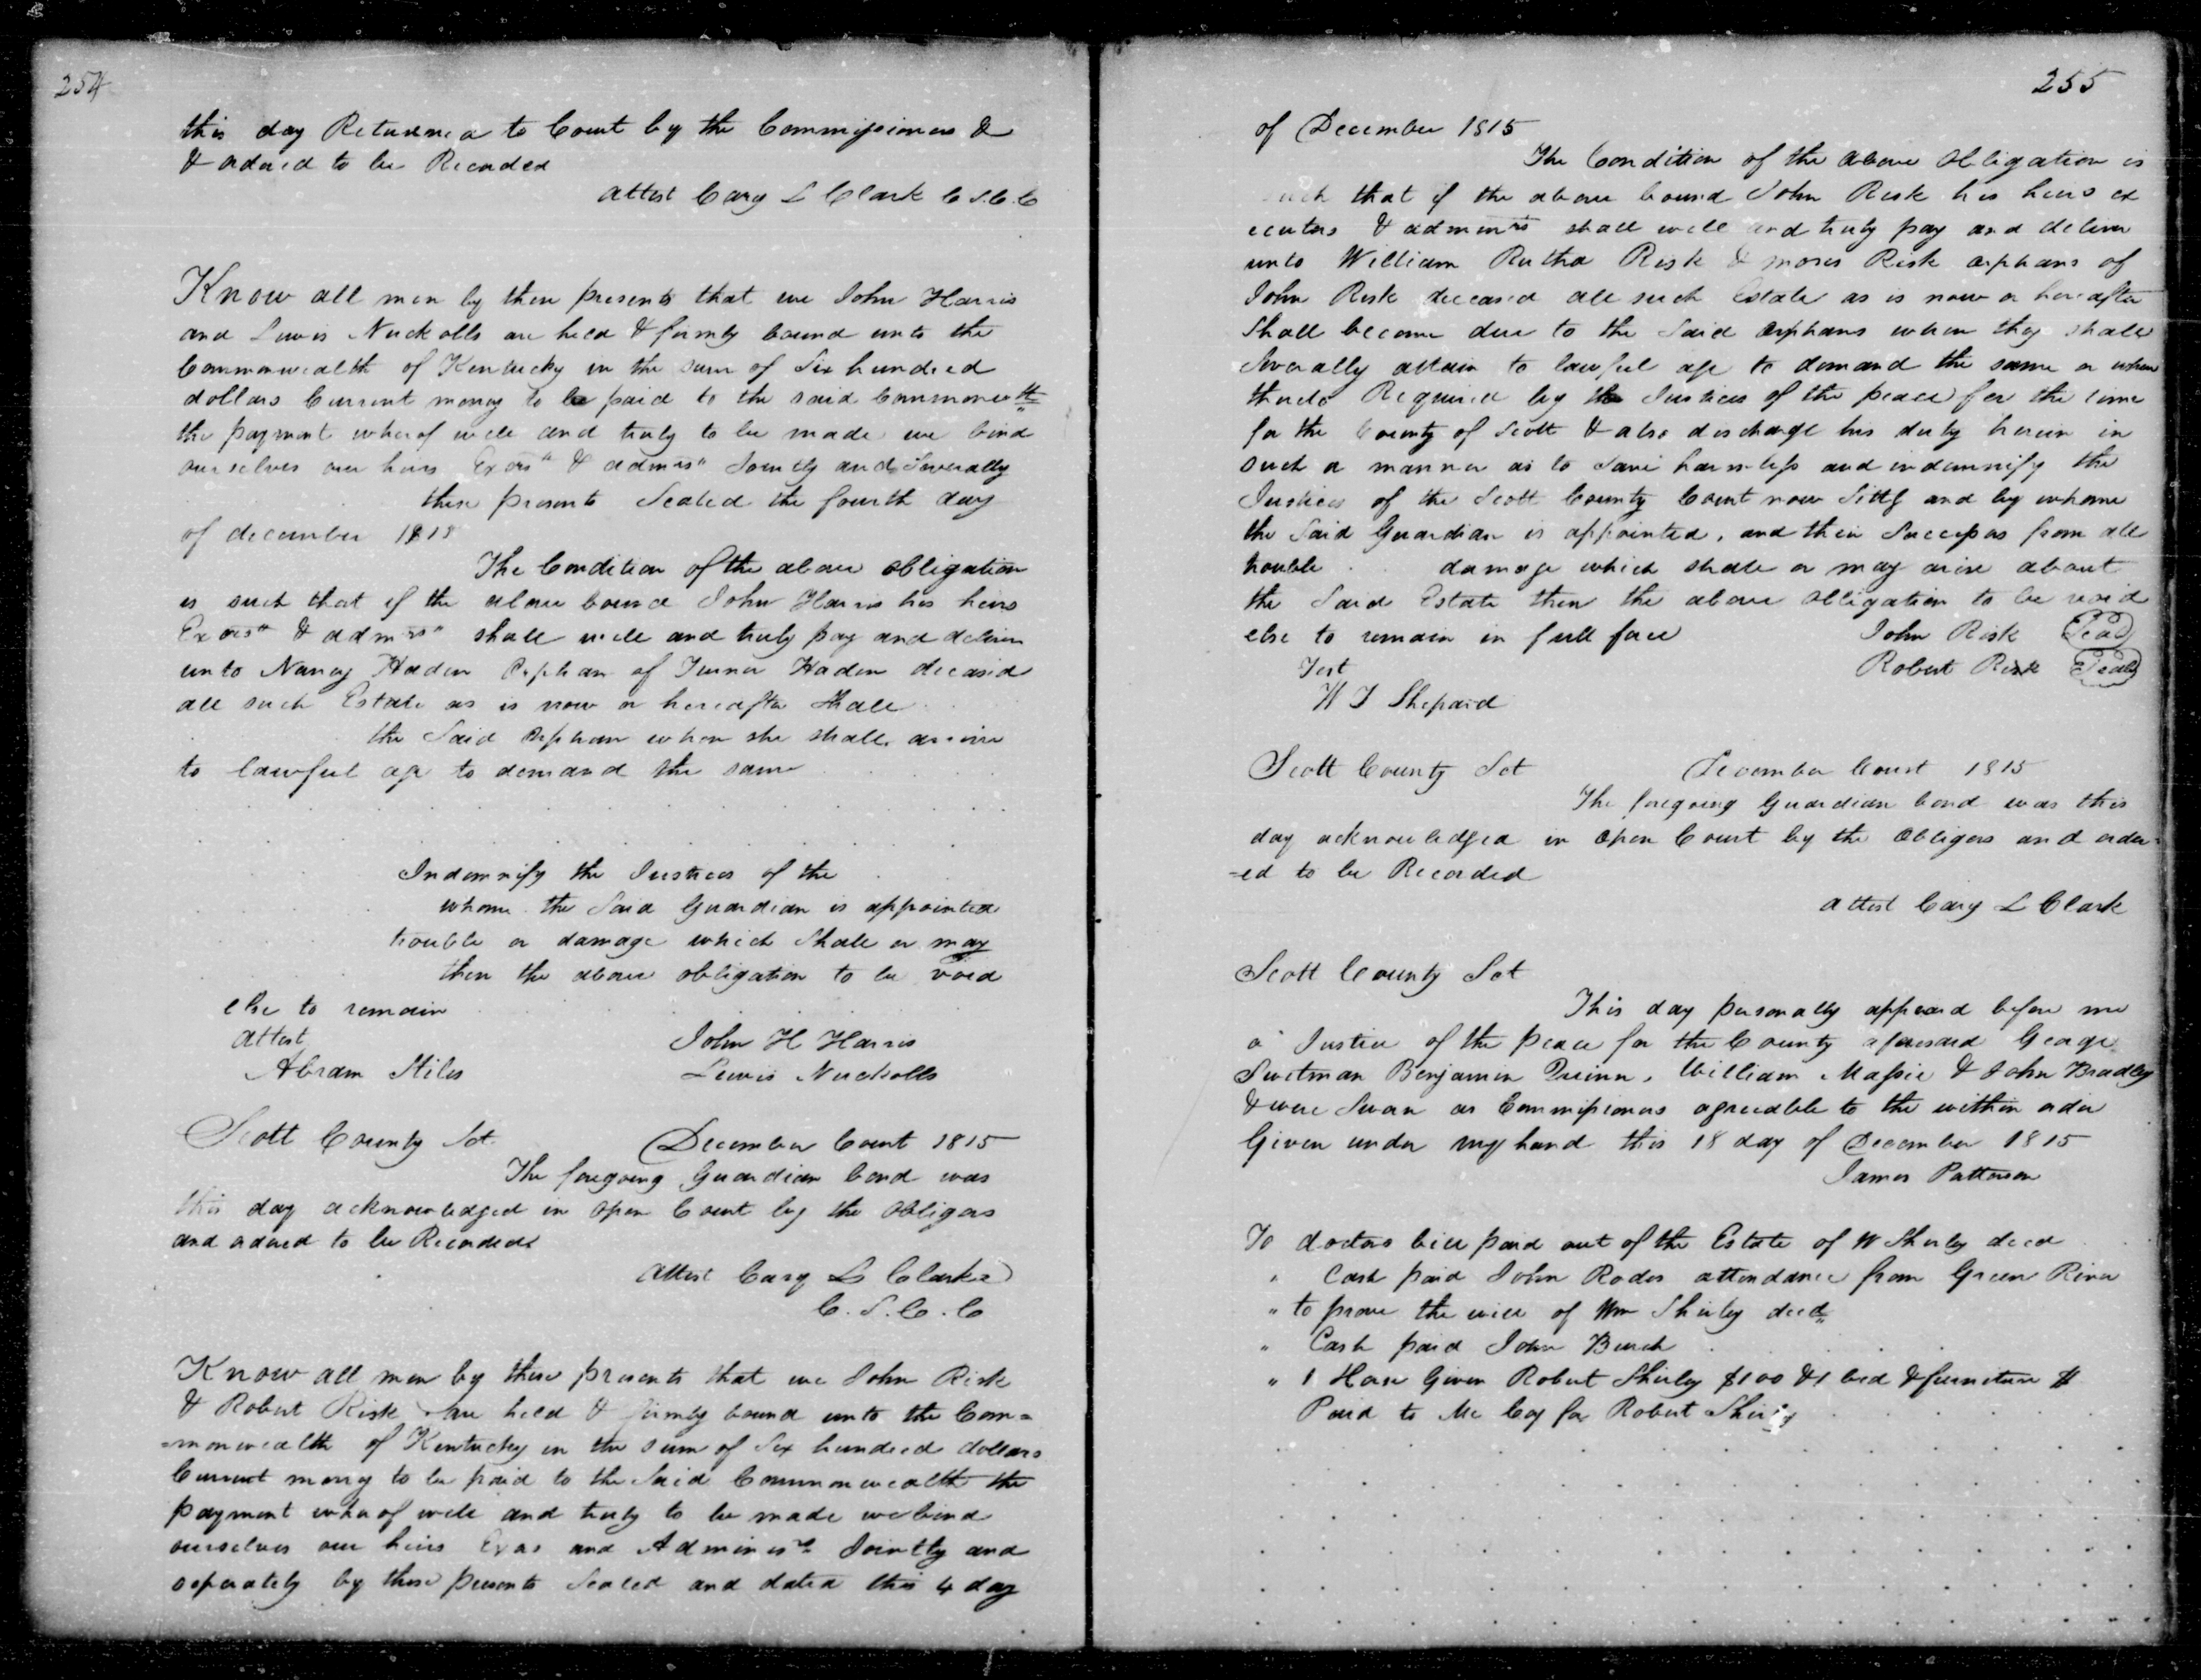 254
this day Returned to Court by the Commissioners &
& ordered to be Recorded
attest Cary L Clark C S. C. C
Know all men by these presents that we John Harris
and Lewis Nuckolls are held & firmly bound unto the
Commonwealth of Kentucky in the sum of Six hundred
dollars Current money to be paid to the said Commonwth
the payment whereof well and truly to be made we bind
ourselves our heirs Exors & admrs Jointly and Severally
these presents Sealed the fourth day
of december 1815
The Condition of the above obligation
is such that if the above bound John Harris his heirs
Exors & admrs shall well and truly pay and deliver
unto Nancy Haden Orphan of Turner Haden deceasd
all such Estate as is now or hereafter Shall
the Said Orphan when she shall arrive
to lawful age to demand the same
Indemnify the Justices of the
whome the Said Guardian is appointed
trouble or damage which Shall or may
then the above obligation to be void
else to remain
attest
John H Harris
Abram Stiles
Lewis Nuckolls
Scott County Sct. December Court 1815
The foregoing Guardian bond was
this day acknowledged in Open Court by the Obligors
and ordered to be Recorded
Attest Cary L Clarke
C. S. C. C
Know all men by these presents that we John Risk
& Robert Risk are held & firmly bound unto the Com=
=monwealth of Kentucky in the sum of Six hundred dollars
Current money to be paid to the Said Commonwealth the
payment whereof well and truly to be made we bind
ourselves our heirs Exors and Adminisrs Jointly and
seperately by these presents Sealed and dated this 4 day
255
of December 1815
The Condition of the above Obligation is
such that if the above bound John Risk his heirs ex
ecutors & adminrs shall well and truly pay and deliver
unto William Rutha Risk & moses Risk orphans of
John Risk deceased all such Estate as is now or hereafter
Shall become due to the Said Orphans when they shall
Severally attain to lawful age to demand the same or when
thereto Required by the Justices of the peace for the time
for the County of Scott & also discharge his duty herein in
such a manner as to Save harmless and indemnify the
Justices of the Scott County Court now Sittg and by whome
the Said Guardian is appointed, and their Successors from all
trouble damage which shall or may arise about
the Said Estate then the above Obligation to be void
else to remain in full force John Risk Seal
Test Robert Risk Seal
W T Shepard
Scott County Sct December Court 1815
The foregoing Guardian bond was this
day acknowledged in Open Court by the Obligors and order=
=ed to be Recorded
attest Cary L Clark
Scott County Sct
This day personally appeard before me
a Justice of the peace for the County aforesaid George
Swetman Benjamin Quinn, William Massie & John Bradley
& were Sworn as Commissioners agreeable to the within order
Given under my hand this 18 day of December 1815
James Patterson
To doctors bill paid out of the Estate of W Shirley decd
" Cash paid John Rodes attendance from Green River
" to prove the will of Wm Shirley decd
" Cash paid John Burch
" 1 Horse Given Robert Shirley $100 & 1 bed & furniture $
Paid to Mc Coy for Robert Shirley